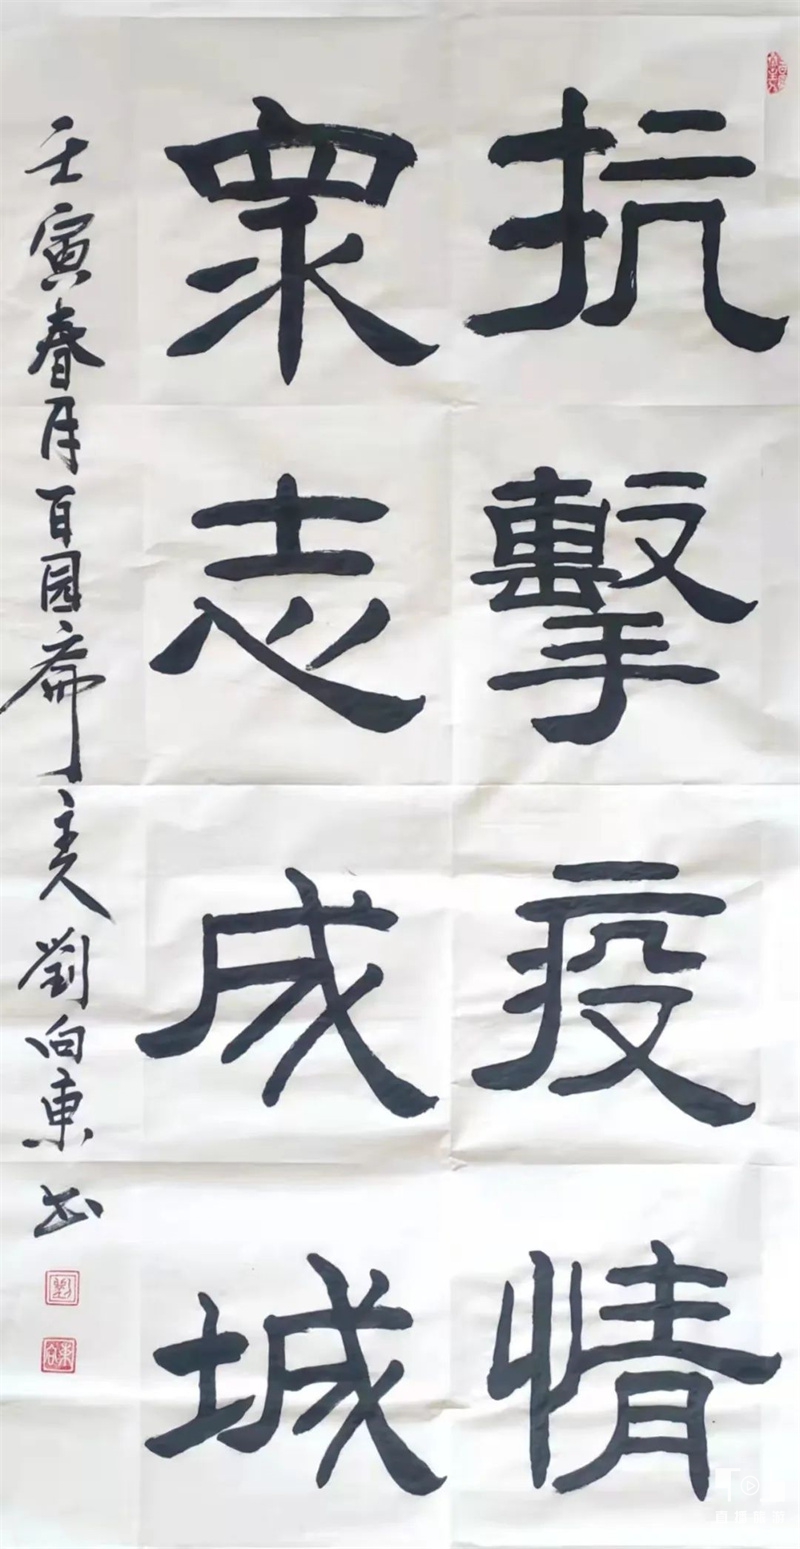 抗擊疫情
眾志成城
壬寅春月百园斋主人劉向東书